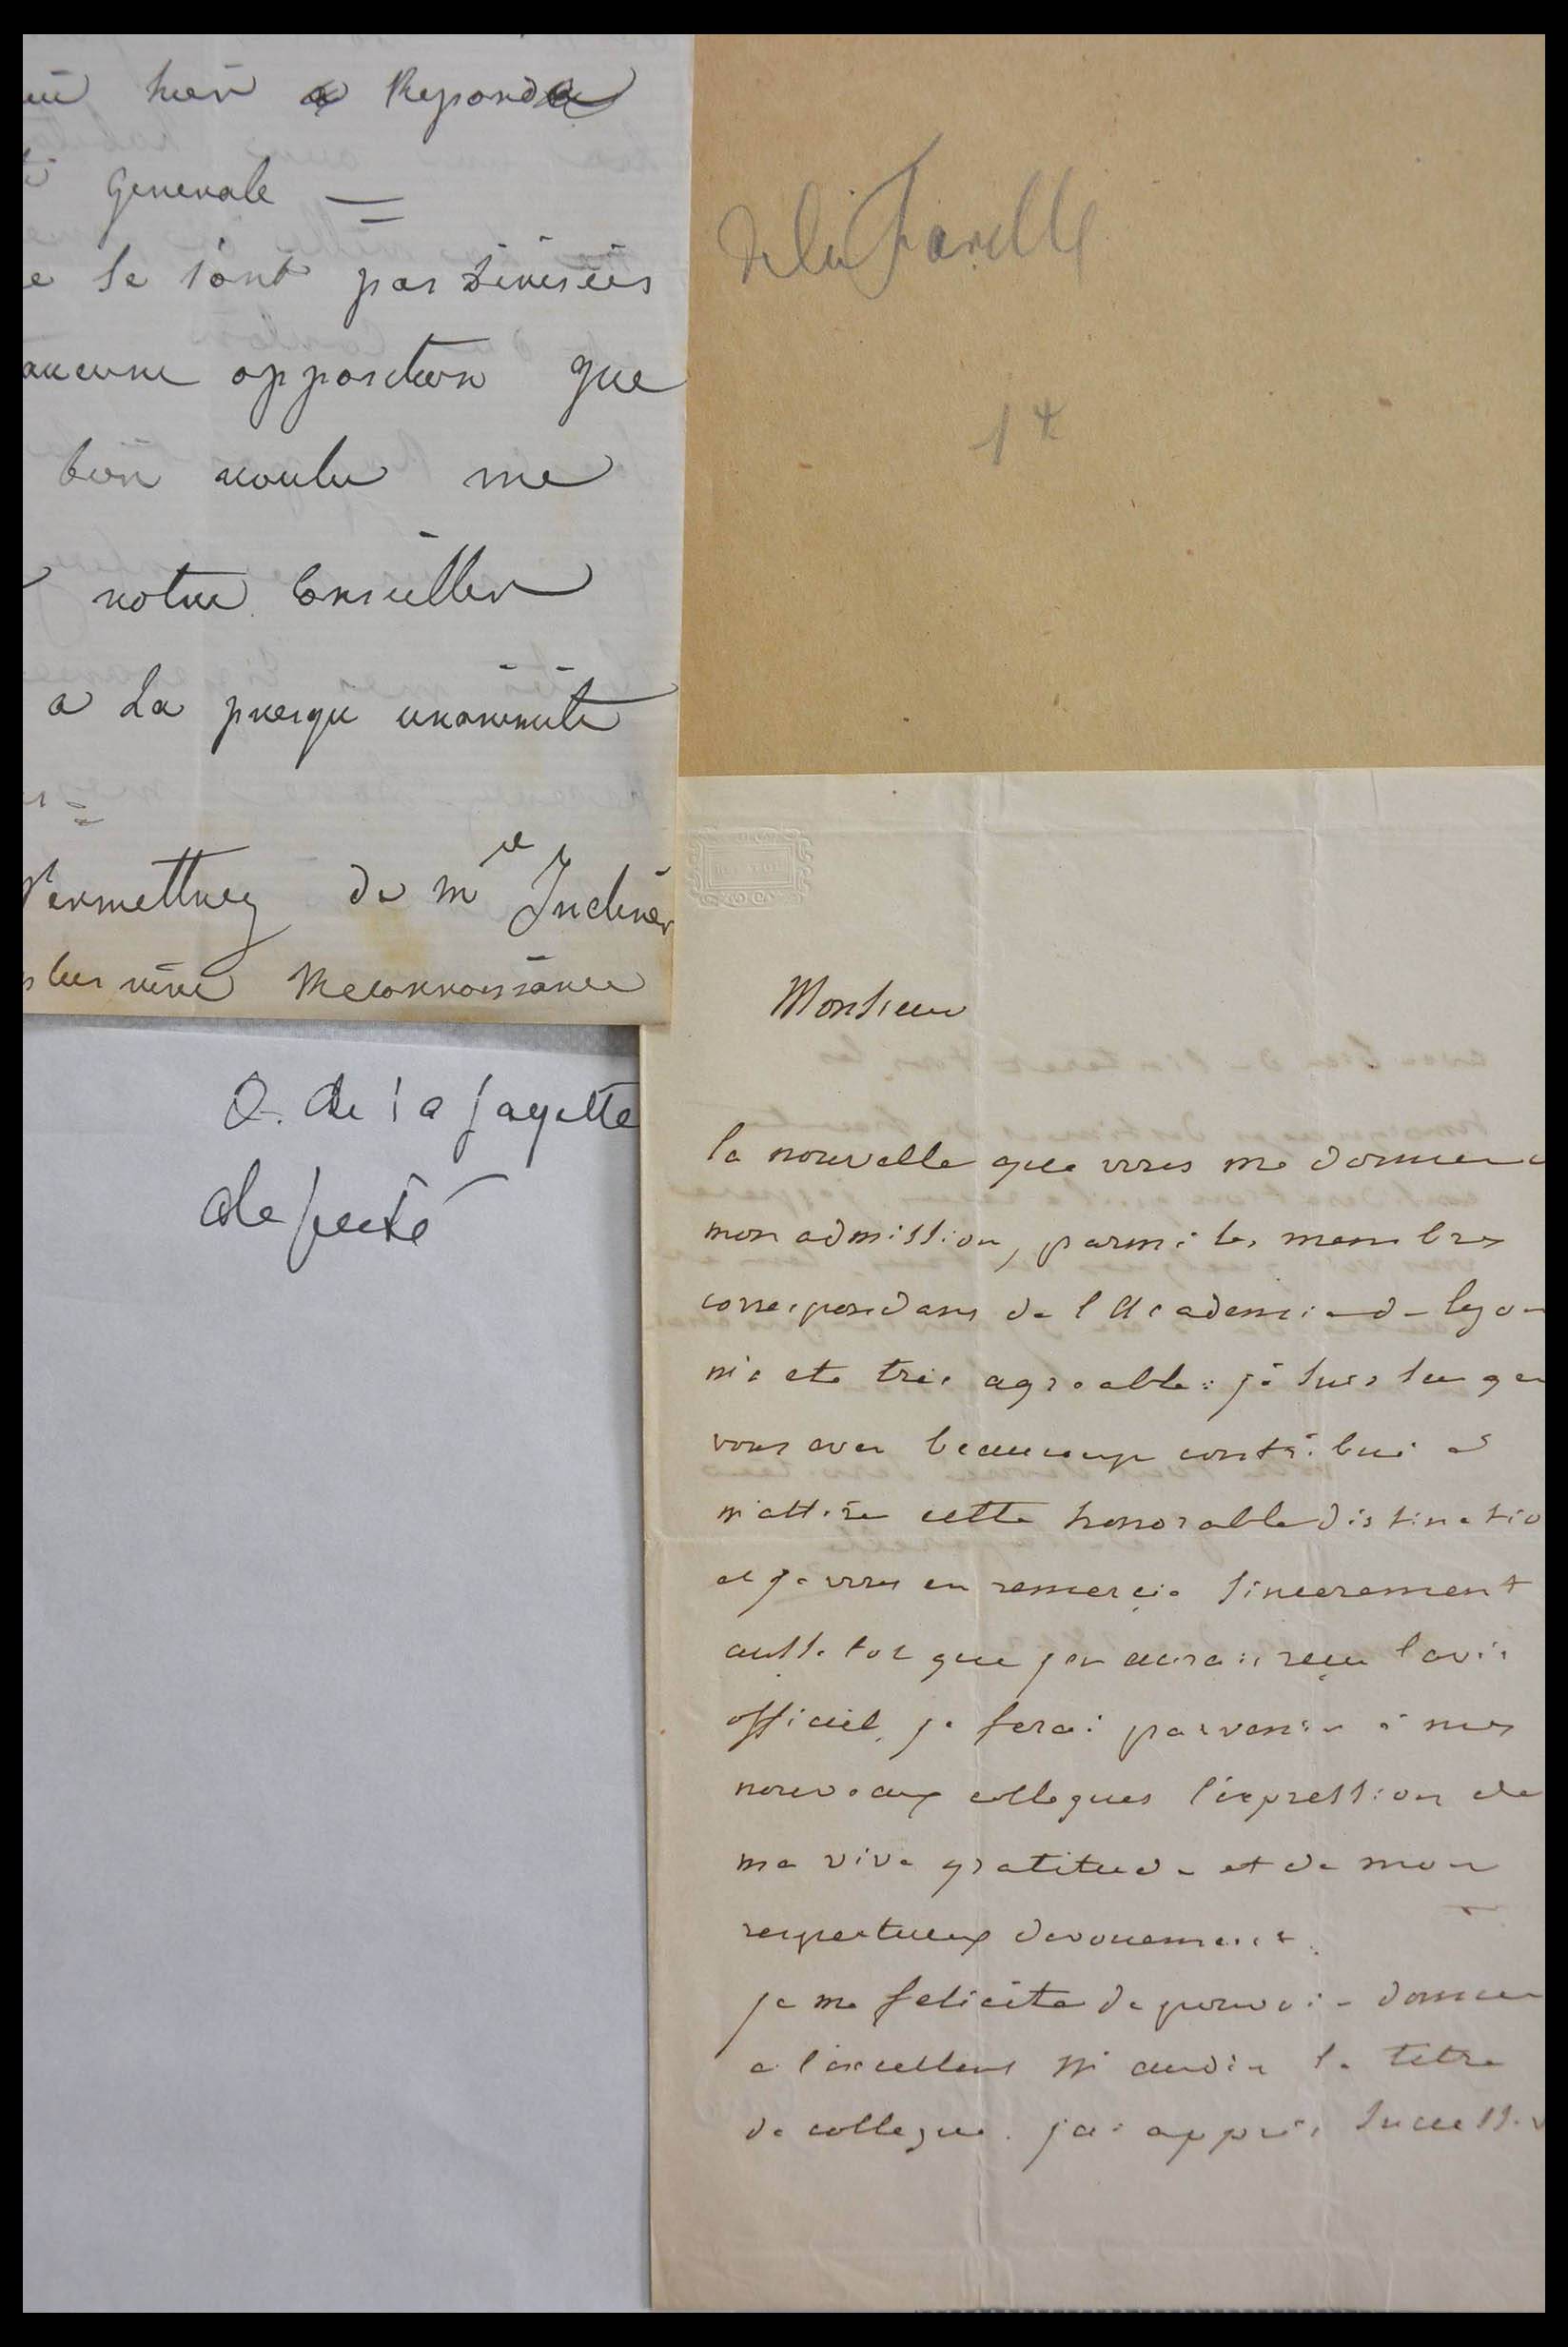 hier a Reponde
generale =
e se sont pas divisées
aucune opposition que
bien voulu me
notre Conseiller
a La presqu unanimité
Permettrez de me Incliner
vive Reconnoissance
O. de la fayette
deputé
de la Farelle
1
Monsieur
la nouvelle que vous me donnez
mon admission, parmi les membres
correspondans de l'Academie de lyon
m'a ete tres agreable: je suis sur que
vous avez beaucoup contribué a
m'attirer cette honorable distinctio
et je vous en remercie sincerement
aussitot que j'en aurai reçu l'avis
officiel, je ferai parvenir à mes
nouveaux collegues l'expression de
ma vive gratitude et de mon
respectueux devouement.
je me felicite de pouvoir donner
a l'excellent Mr audin le titre
de collegue. j'ai appris